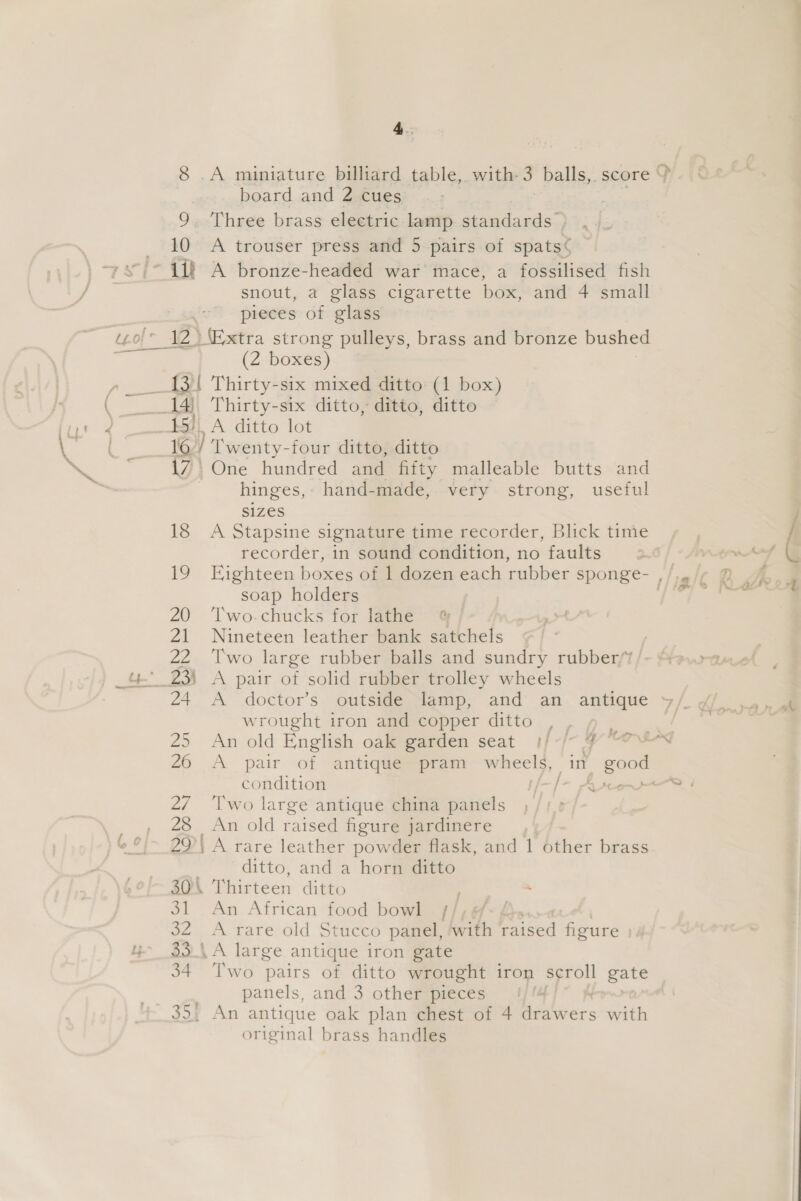 4.
8 A miniature billiard table, with 3 balls, score
board and 2 cues
9. Three brass electric lamp standards
10 A trouser press and 5 pairs of spats
11 A bronze-headed war mace, a fossilised fish
snout, a glass cigarette box, and 4 small
pieces of glass
12 Extra strong pulleys, brass and bronze bushed
(2 boxes)
13 Thirty-six mixed ditto (1 box)
14 Thirty-six ditto, ditto, ditto
15 A ditto lot
16 Twenty-four ditto, ditto
17 One hundred and fifty malleable butts and
hinges, hand-made, very strong, useful
sizes
18 A Stapsine signature time recorder, Blick time
recorder, in sound condition, no faults
19 Eighteen boxes of 1 dozen each rubber sponge-
soap holders
20 Two chucks for lathe
21 Nineteen leather bank satchels
22 Two large rubber balls and sundry rubber
23 A pair of solid rubber trolley wheels
24 A doctor's outside lamp, and an antique
wrought iron and copper ditto
25 An old English oak garden seat
26 A pair of antique pram wheels, in good
condition
27 Two large antique china panels
28 An old raised figure jardinere
29 A rare leather powder flask, and 1 other brass
ditto, and a horn ditto
30 Thirteen ditto
31 An African food bowl
32 A rare old Stucco panel, with raised figure
33 A large antique iron gate
34 Two pairs of ditto wrought iron scroll gate
panels, and 3 other pieces
35 An antique oak plan chest of 4 drawers with
original brass handles